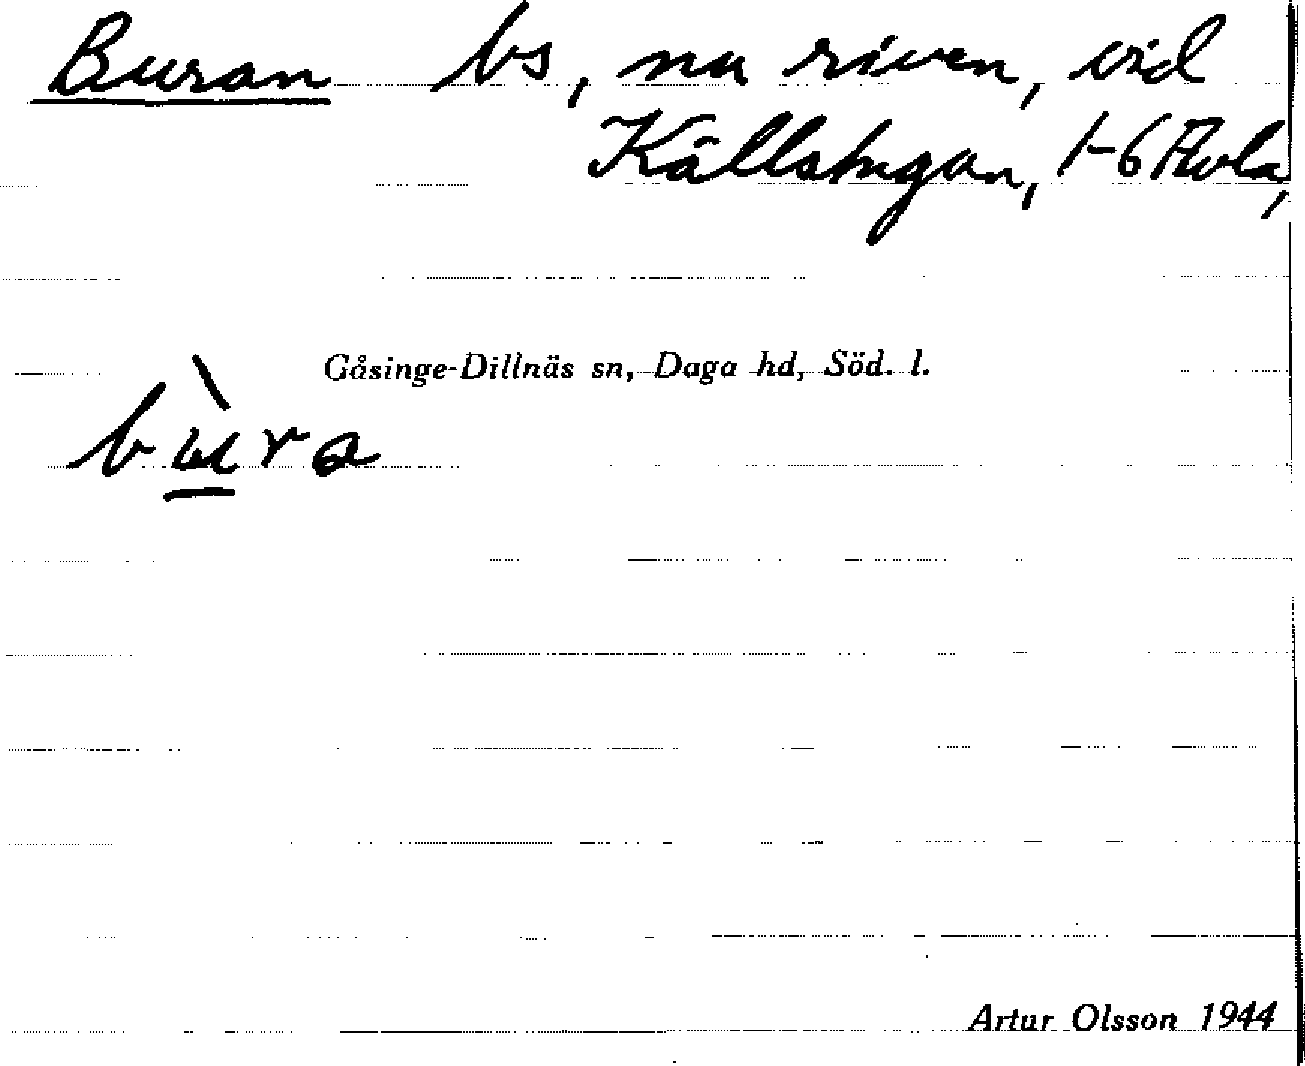 Buran bs, nu riven, vid
Källstugan, 1-6
Gåsinge-Dillnäs sn, Daga hd, Söd. l.
bùra
Artur Olsson 1944